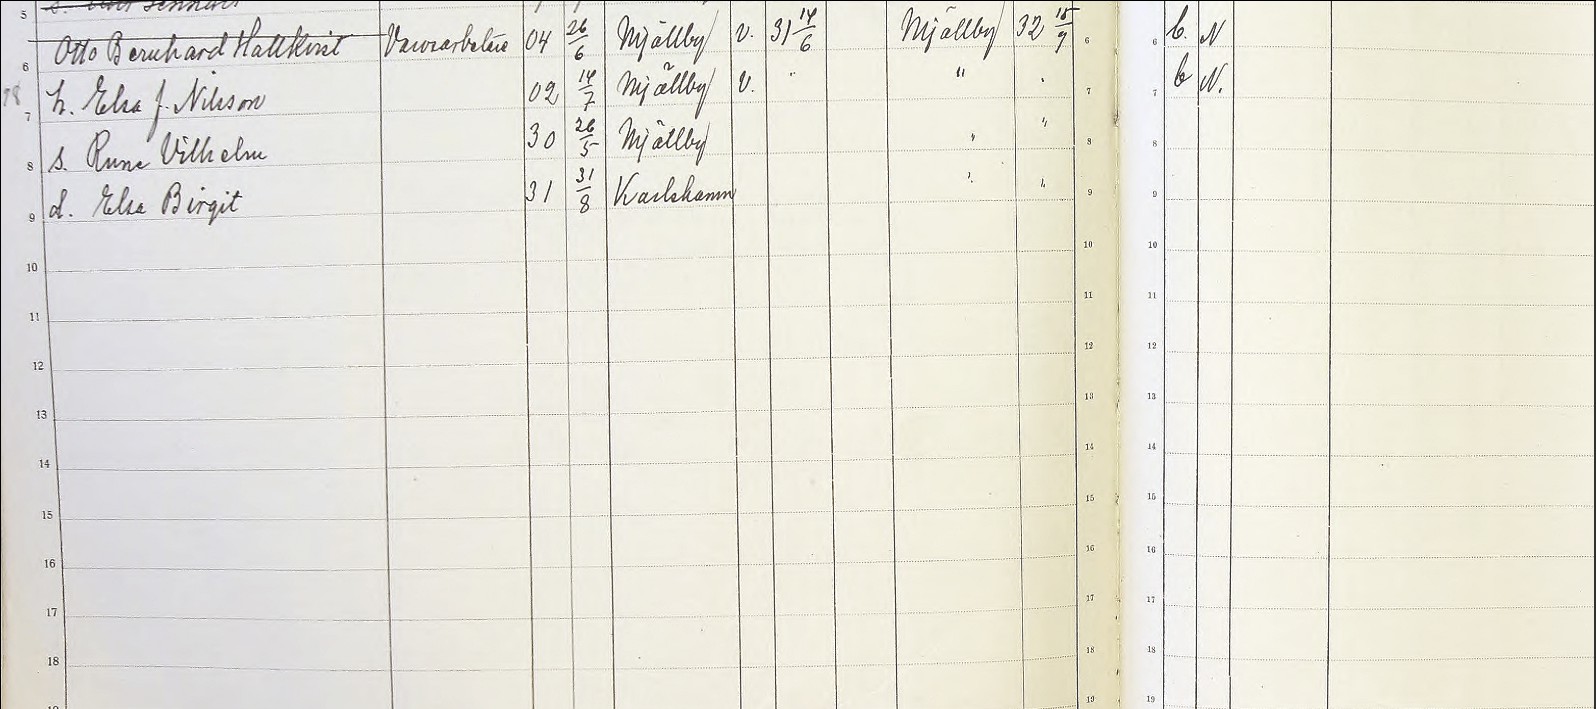 5
6 Otto Bernhard Hallkvist Varvsarbetare 04 26/6 Mjällby v. 31 14/6 Mjällby 32 15/9 6 6 b. N
7 h. Elsa J. Nilsson 02 14/7 Mjällby v. " " " 7 7 b N.
8 s. Rune Vilhelm 30 26/5 Mjällby " " 8 8
9 d. Elsa Birgit 31 31/8 Karlshamn " " 9 9
10 10 10
11 11 11
12 12 12
13 13 13
14 14 14
15 15 15
16 16 16
17 17 17
18 18 18
19 19